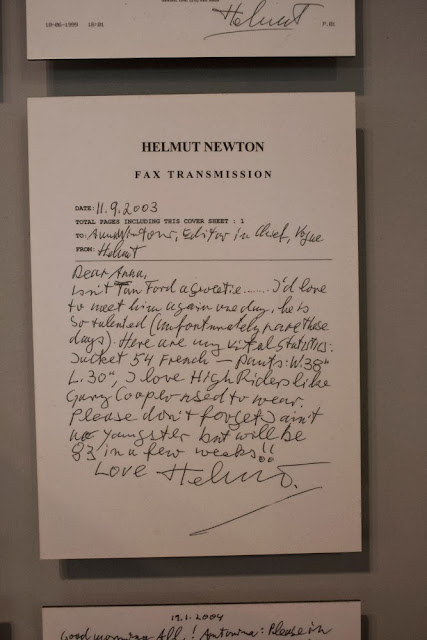 Helmut
10-06-1999 10:01 P.01
HELMUT NEWTON
FAX TRANSMISSION
DATE: 11.9.2003
TOTAL PAGES INCLUDING THIS COVER SHEET : 1
TO: Anna Wintour, Editor in Chief, Vogue
FROM: Helmut
Dear Anna,
Isn't Tom Ford a sweetie........ I'd love
to meet him again one day, he is
so talented (unfortunately rare these
days). Here are my vital statistics:
Jacket 54 French — pants: W.38"
L.30", I love High Riders like
Gary Cooper used to wear.
Please don't forget I ain't
no youngster but will be
83 in a few weeks!!
Love Helmut.
19.1.2004
Good morning All,! Antonina: Please in